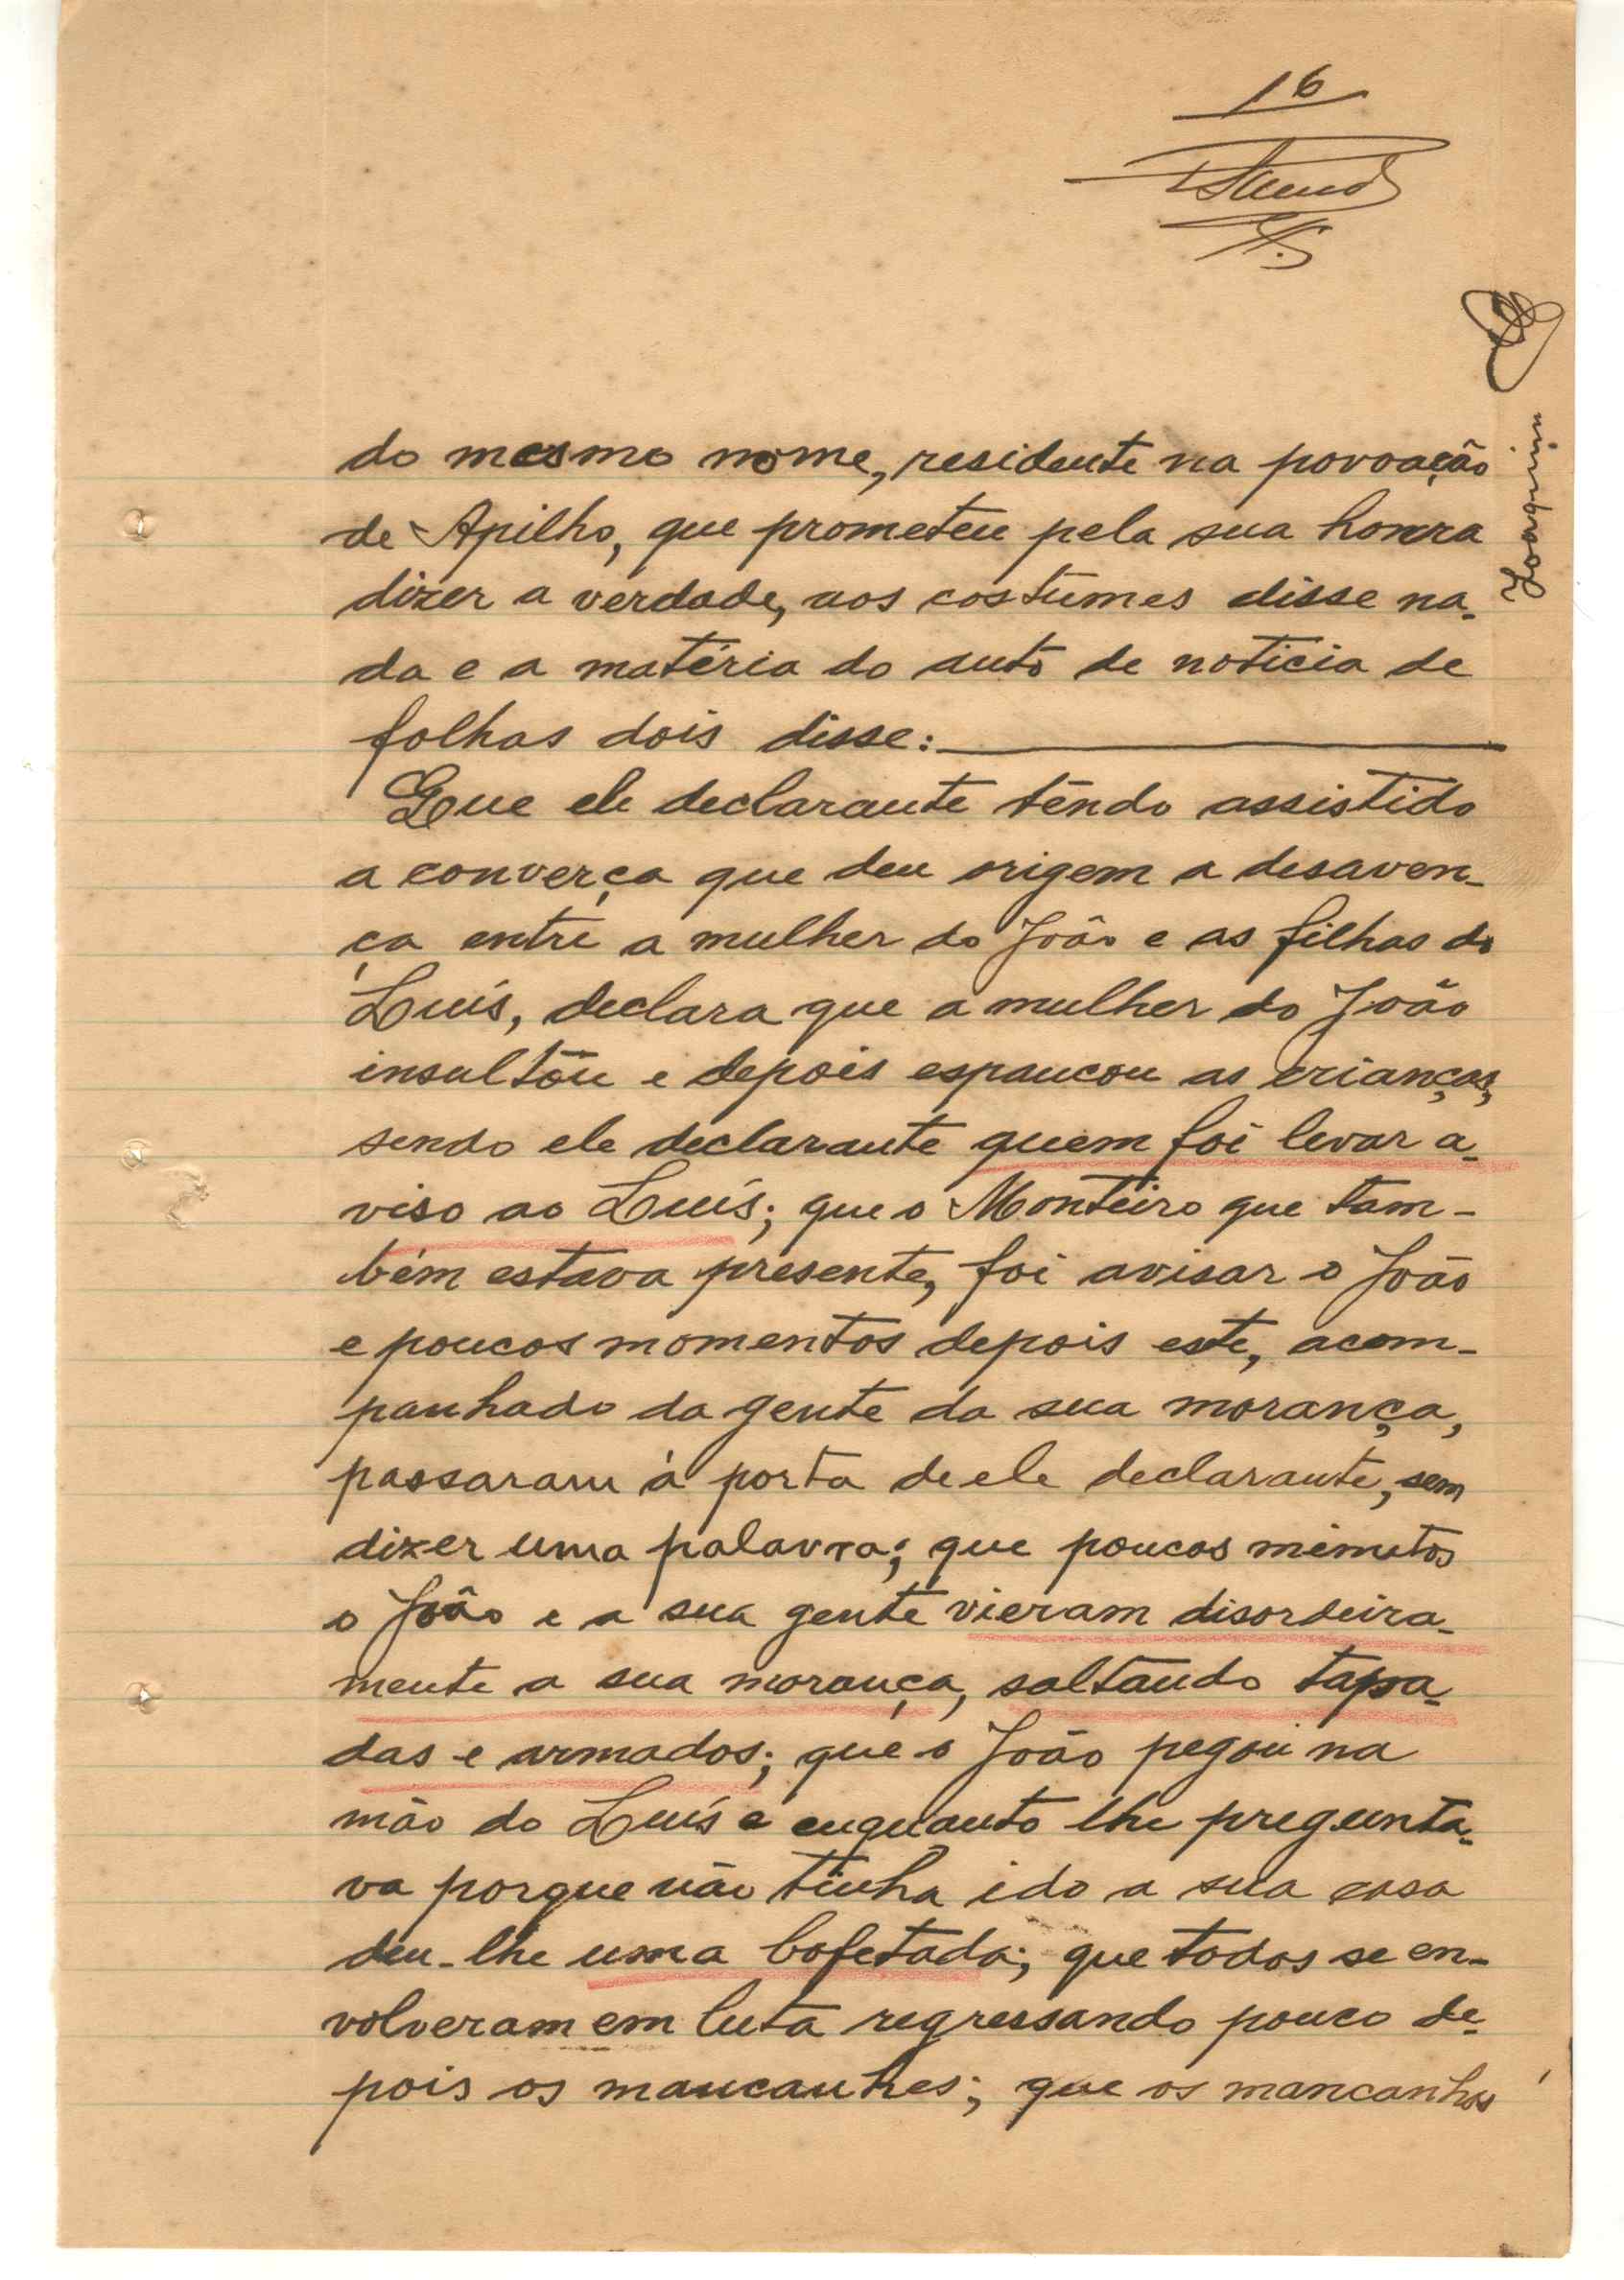 16
Joaquim
do mesmo nome, residente na povoação
de Apilho, que prometeu pela sua honra
dizer a verdade, aos costumes disse na-
da e a matéria do auto de noticia de
folhas dois disse:
Que ele declarante tendo assistido
a converça que deu origem a desaven-
ça entre a mulher do João e as filhas do
Luís, declara que a mulher do João
insultou e depois espancou as crianças,
sendo ele declarante quem foi levar a-
viso ao Luís; que o Monteiro que tam-
bém estava presente, foi avisar o João
e poucos momentos depois este, acom-
panhado da gente da sua morança,
passaram à porta de ele declarante, sem
dizer uma palavra; que poucos minutos
o João e a sua gente vieram disordeira-
mente a sua morança, saltando tapa-
das e armados; que o João pegou na
mão do Luís e enquanto lhe pregunta-
va porque não tinha ido a sua casa
deu-lhe uma bofetada; que todos se en-
volveram em luta regressando pouco de-
pois os mancanhes; que os mancanhes